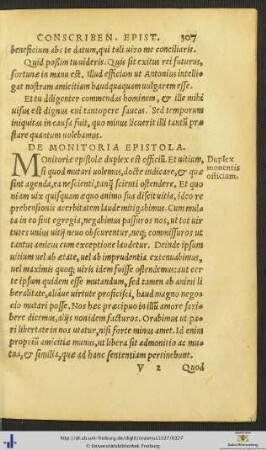 CONSCRIBEN. EPIST. 307
beneficium abs te datum, qui tali uiro me conciliaris.
Quid possim tu uideris. Quis sit exitus rei futurus,
fortunæ in manu est. Illud efficiam ut Antonius intelli
gat nostram amicitiam haudquaquam uulgarem esse.
Et tu diligenter commendas hominem, & ille mihi
uisus est dignus cui tantopere faueas. Sed temporum
iniquitas in causa fuit, quo minus licuerit illi tantũ præ
stare quantum uolebamus.
DE MONITORIA EPISTOLA.
Monitoriæ epistolæ duplex est officiũ. Et uitium,
si quod mutari uolemus, docte indicare, & quæ
sint agenda, ea nescienti, tanq̃ scienti ostendere. Et quo
niam uix quisquam æquo animo sua didicit uitia, ideo re
prehensionis acerbitatem laude mitigabimus. Cum mola
ta in eo sint egregia, negabimus passuros nos, ut tot uir
tutes unius uitij neuo obscurentur, neq; commissuros ut
tantus amicus cum exceptione laudetur. Deinde ipsum
uitium uel ab ætate, uel ab imprudentia extenuabimus,
uel maximis quoq; uiris idem fuisse ostendemus: aut cer
te ipsum quidem esse mutandum, sed tamen ab animi li
beralitate, aliáue uirtute proficisci, haud magno nego‑
cio mutari posse. Nos hæc præcipuo in illũ amore scri‑
bere dicemus, alijs nonidem facturos. Orabimus ut pa‑
ri libertate in nos utatur, nisi forte minus amet. Id enim
propriũ amicitiæ munus, ut libera sit admonitio ac mu
tua, & similia, quæ ad hanc sententiam pertinebunt.
V 2 Quod
Duplex
monentis
officium.
http://dl.ub.uni-freiburg.de/diglit/erasmus1537/0327
© Universitätsbibliothek Freiburg